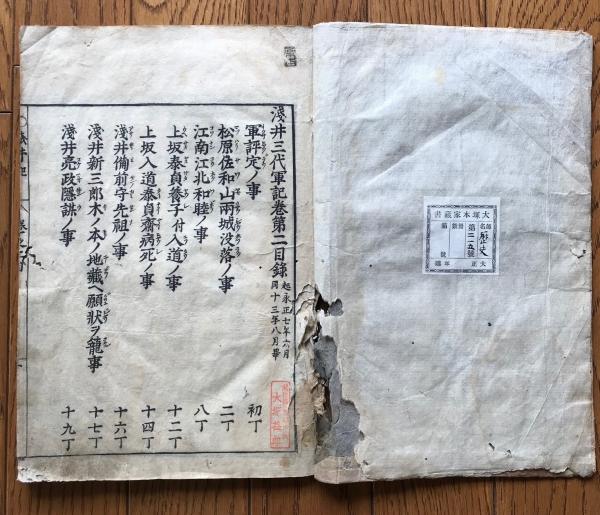 淺井三代軍記卷第二目録
起永正七年六月
同十三年八月畢
軍評定ノ事
初丁
松原佐和山両城没落ノ事
二丁
江南江北和睦ノ事
八丁
上坂泰貞養子付入道ノ事
十二丁
上坂入道泰貞齋病死ノ事
十四丁
淺井備前守先祖ノ事
十六丁
淺井新三郎木ノ本ノ地藏ヘ願状ヲ籠事
十七丁
淺井亮政隱謀ノ事
十九丁
大塚本家藏書
部名
歴史
第二一五號
號
大正